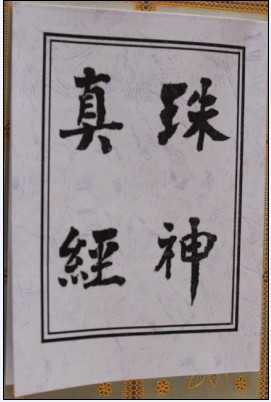 珠神
真經